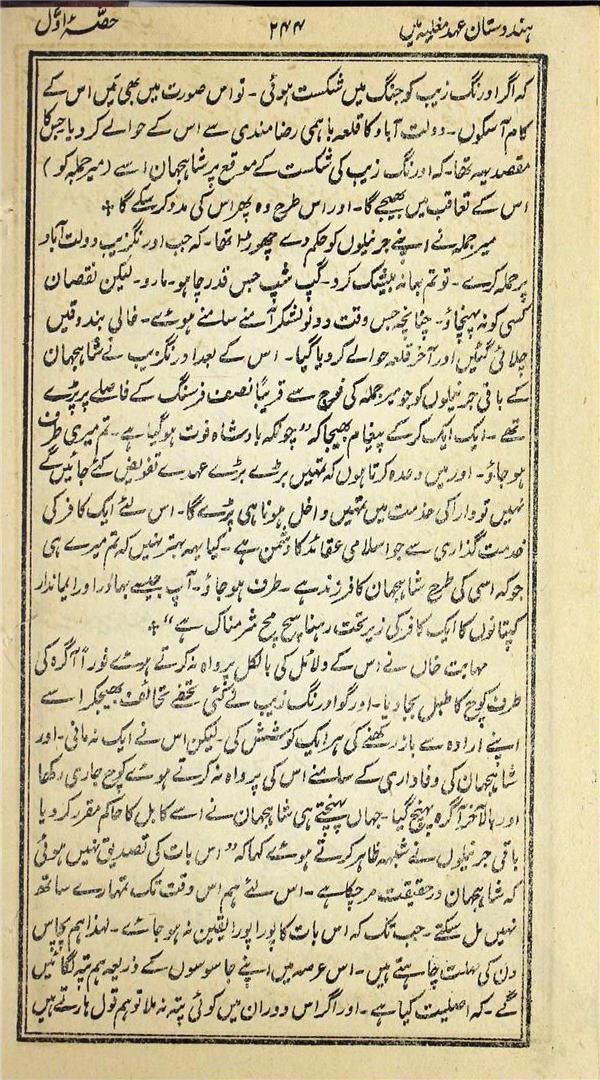 ہندوستان عہد مغلیہ میں ۲۴۴ حصہ اوّل
کہ اگر اورنگ زیب کو جنگ میں شکست ہوئی ۔ تو اس صورت میں بھی میں اس کے
کام آسکوں ۔ دولت آباد کا قلعہ باہمی رضامندی سے اس کے حوالے کر دیا جس کا
مقصد یہہ تھا ۔ کہ اورنگ زیب کی شکست کے موقع پر شاہجہان اسے (میر جملہ کو)
اس کے تعاقب میں بھیجے گا ۔ اور اس طرح وہ پھر اس کی مدد کر سکے گا ؞
میر جملہ نے اپنے جرنیلوں کو حکم دے چھوڑا تھا ۔ کہ جب اورنگزیب دولت آباد
پر حملہ کرے ۔ تو تم بہانہ بیشک کرو ۔ گپ شپ جس قدر چاہو ۔ مارو ۔ لیکن نقصان
کسی کو نہ پہنچاؤ ۔ چنانچہ جس وقت دونو لشکر آمنے سامنے ہوئے ۔ خالی بندوقیں
چلائی گئیں اور آخر قلعہ حوالے کر دیا گیا ۔ اس کے بعد اورنگزیب نے شاہجہان
کے باقی جرنیلوں کو جو میر جملہ کی فوج سے قریباً نصف فرسنگ کے فاصلے پر پڑے
تھے ۔ ایک ایک کر کے پیغام بھیجا کہ ”چونکہ بادشاہ فوت ہو گیا ہے ۔ تم میری طرف
ہو جاؤ ۔ اور میں وعدہ کرتا ہوں کہ تمہیں بڑے بڑے عہدے تفویض کئے جائیں گے
نہیں تو دارا کی خدمت میں تمہیں داخل ہونا ہی پڑے گا ۔ اس لئے ایک کافر کی
خدمت گذاری سے جو اسلامی عقائد کا دشمن ہے ۔ کیا یہہ بہتر نہیں کہ تم میرے ہی
جو کہ اسی کی طرح شاہجہان کا فرزند ہے ۔ طرف ہو جاؤ ۔ آپ جیسے بہادر اور ایماندار
کپتانوں کا ایک کافر کی زیر تحت رہنا سچ مچ شرمناک ہے“ ؞
مہابت خاں نے اس کے دلائل کی بالکل پرواہ نہ کرتے ہوئے فوراً آگرہ کی
طرف کوچ کا طبل بجا دیا ۔ اور گو اورنگ زیب نے کئی تحفے تحائف بھیجکر اسے
اپنے ارادہ سے باز رکھنے کی ہر ایک کوشش کی ۔ لیکن اس نے ایک نہ مانی ۔ اور
شاہجہان کی وفاداری کے سامنے اس کی پرواہ نہ کرتے ہوئے کوچ جاری رکھا
اور بالآخر آگرہ پہنچ گیا ۔ جہاں پہنچتے ہی شاہجہان نے اسے کابل کا حاکم مقرر کر دیا
باقی جرنیلوں نے شبہہ ظاہر کرتے ہوئے کہا کہ ”اس بات کی تصدیق نہیں ہوئی
کہ شاہجہان درحقیقت مر چکا ہے ۔ اس لئے ہم اس وقت تک تمہارے ساتھ
نہیں مل سکتے ۔ جب تک کہ اس بات کا پورا پورا یقین نہ ہو جائے ۔ لہذا ہم پچاس
دن کی مہلت چاہتے ہیں ۔ اس عرصہ میں اپنے جاسوسوں کے ذریعہ ہم پتہ لگائیں
گے ۔ کہ اصلیت کیا ہے ۔ اور اگر اس دوران میں کوئی پتہ نہ ملا تو ہم قول ہارتے ہیں